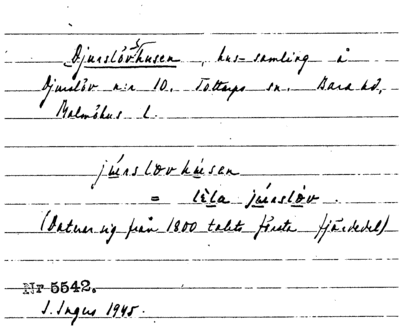 Djurslövhusen, hus-samling å
Djurslöv n:r 10. Tottarps sn. Bara hd,
Malmöhus l.
júʉrslovhʉ́sen
= lela júʉrslöv.
(Daterar sig från 1800 talets första fjärdedel)
Nr 5542.
S. Ingers 1945.